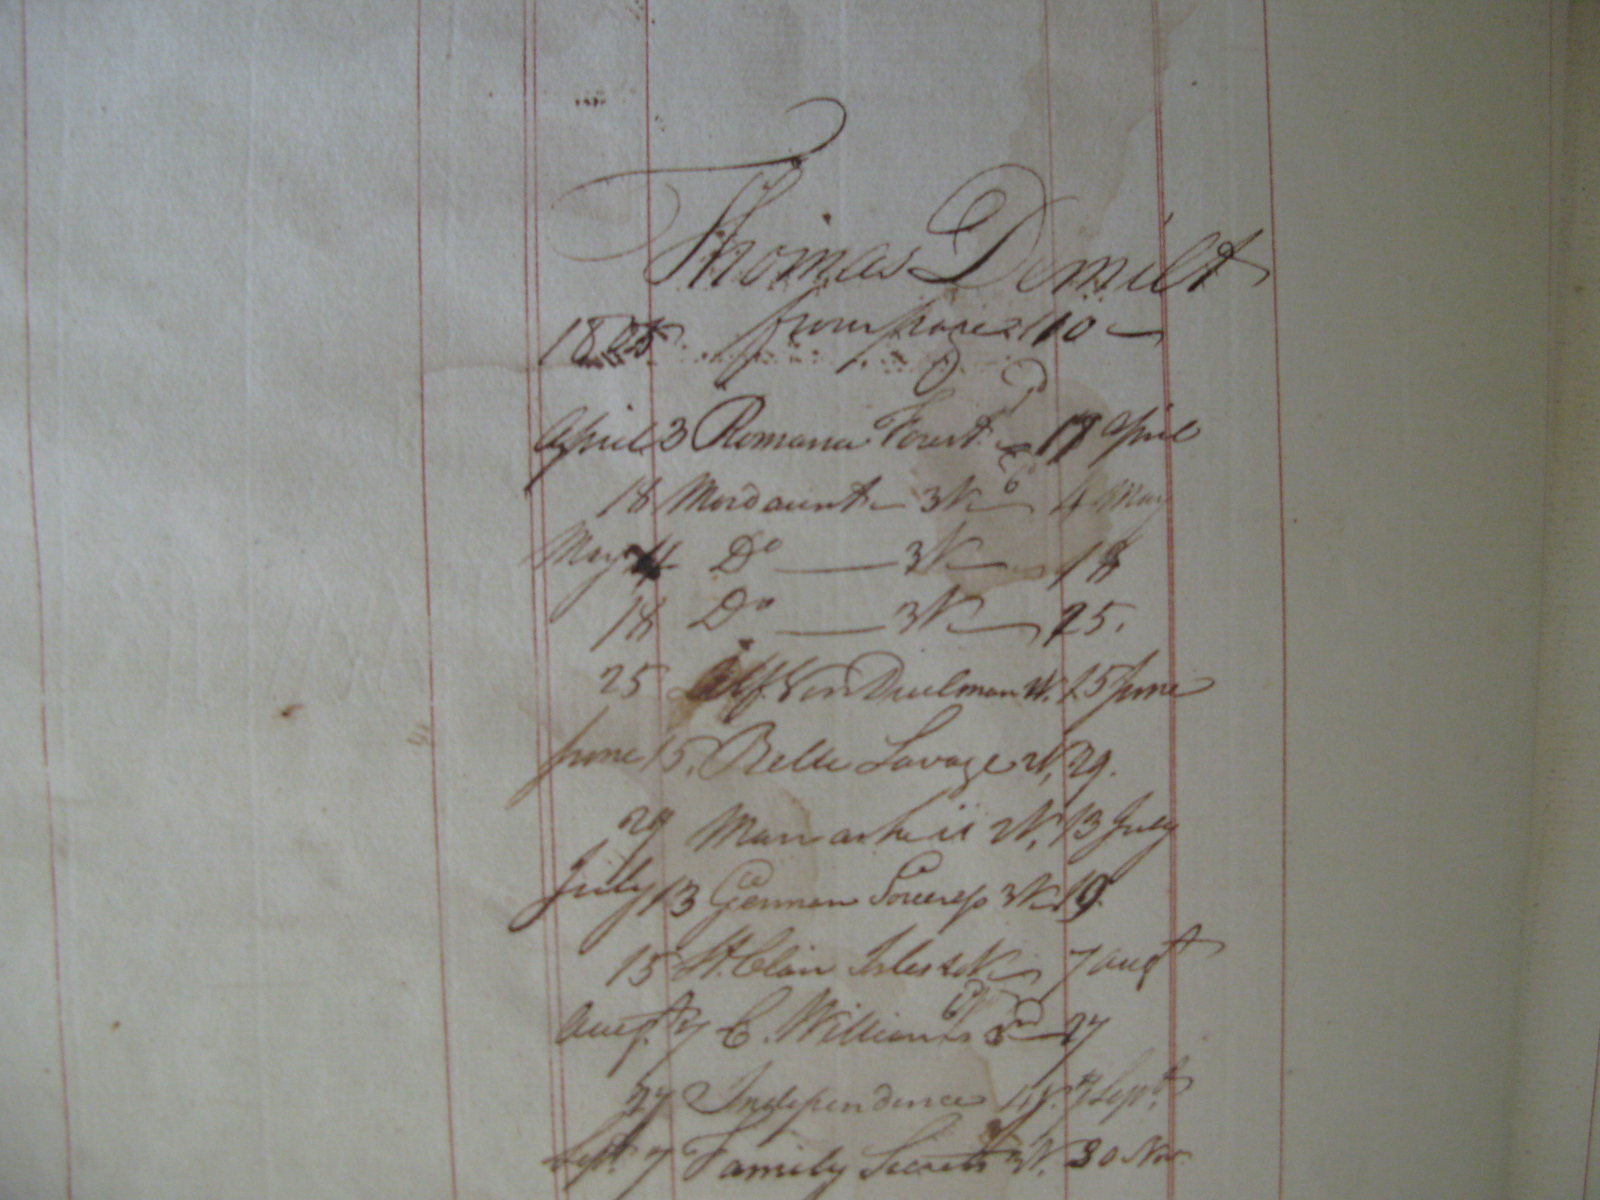 Thomas Demilt
1805 from page 110
April 3 Romance Forest 18 April
18 Mordaunt 3 V 6 4 May
May 4 Do 3 V 18
18 Do 3 V 25.
25 Alf. Von Duelman V. 15 June
June 15. Belle Savage 2 V. 29.
29 Man as he is 2 V. 13 July
July 13 German Sorceress 3 V 19.
15 St. Clair Isles V 7 Augt
Augt. 7 C. Williams 27
27 Independence 1 V. 7 Sept.
Sept. 7 Family Secrets 3 V. 30 Nov